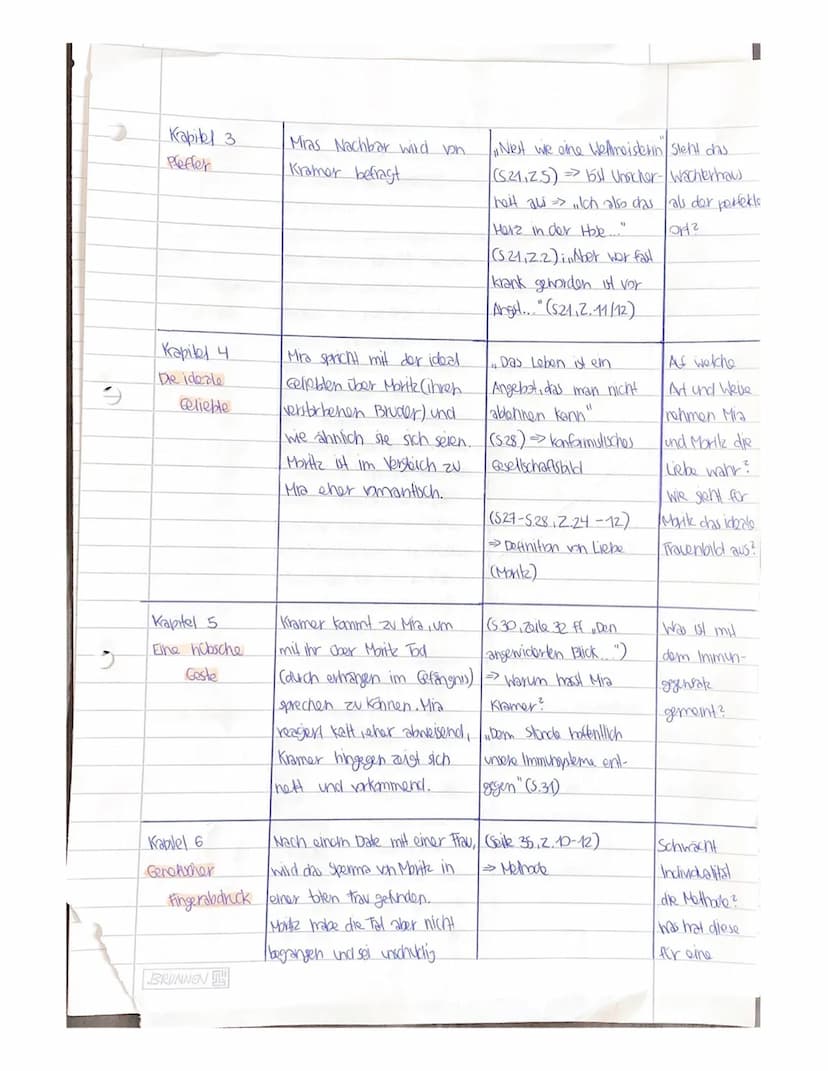 Kapitel 3
Pfeffer
Mias Nachbar wird von
Kramer befragt
„Nest wie eine Weltmeisterin"
(S21, Z.5) => löst Unsicher-
heit aus => „Ich also das
Herz in der Hose..."
(S21, Z.2); „Aber wer fast
krank geworden ist vor
Angst..." (S21, Z. 11/12)
Steht das
Wächterhaus
als der perfekte
Ort?
Kapitel 4
Die ideale
Geliebte
Mia spricht mit der ideal
Geliebten über Moritz (ihren
verstorbenen Bruder) und
wie ähnlich sie sich seien.
Moritz ist im Vergleich zu
Mia eher romantisch.
„Das Leben ist ein
Angebot, das man nicht
ablehnen kann"
(S28) => konformistisches
Gesellschaftsbild
(S27-S.28, Z.24 - 12)
=> Definition von Liebe
(Moritz)
Auf welche
Art und Weise
nehmen Mia
und Moritz die
Liebe wahr?
Wie sieht für
Moritz das ideale
Frauenbild aus?
Kapitel 5
Eine hübsche
Geste
Kramer kommt zu Mia, um
mit ihr über Moritz Tod
(durch erhängen im Gefängnis)
sprechen zu können. Mia
reagiert kalt, eher abweisend,
Kramer hingegen zeigt sich
nett und vorkommend.
(S 30, Zeile 32 ff „Den
angewiderten Blick...")
=> Warum hasst Mia
Kramer?
„Dem stünde hoffentlich
unsere Immunsysteme ent-
gegen" (S.31)
Was ist mit
dem Immun-
gemeint?
Kapitel 6
Genetischer
Fingerabdruck
Nach einem Date mit einer Frau,
wird das Sperma von Moritz in
einer toten Frau gefunden.
Moritz habe die Tat aber nicht
begangen und sei unschuldig
(Seite 35, Z. 10-12)
=> Methode
Schwächt
Individualität
die Methode?
Was hat diese
für eine
BRUNNEN